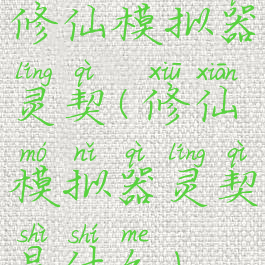 修仙模拟器
líng qì xiū xiān
灵契(修仙
mó nǐ qì líng qì
模拟器灵契
shì shí me
是什么)